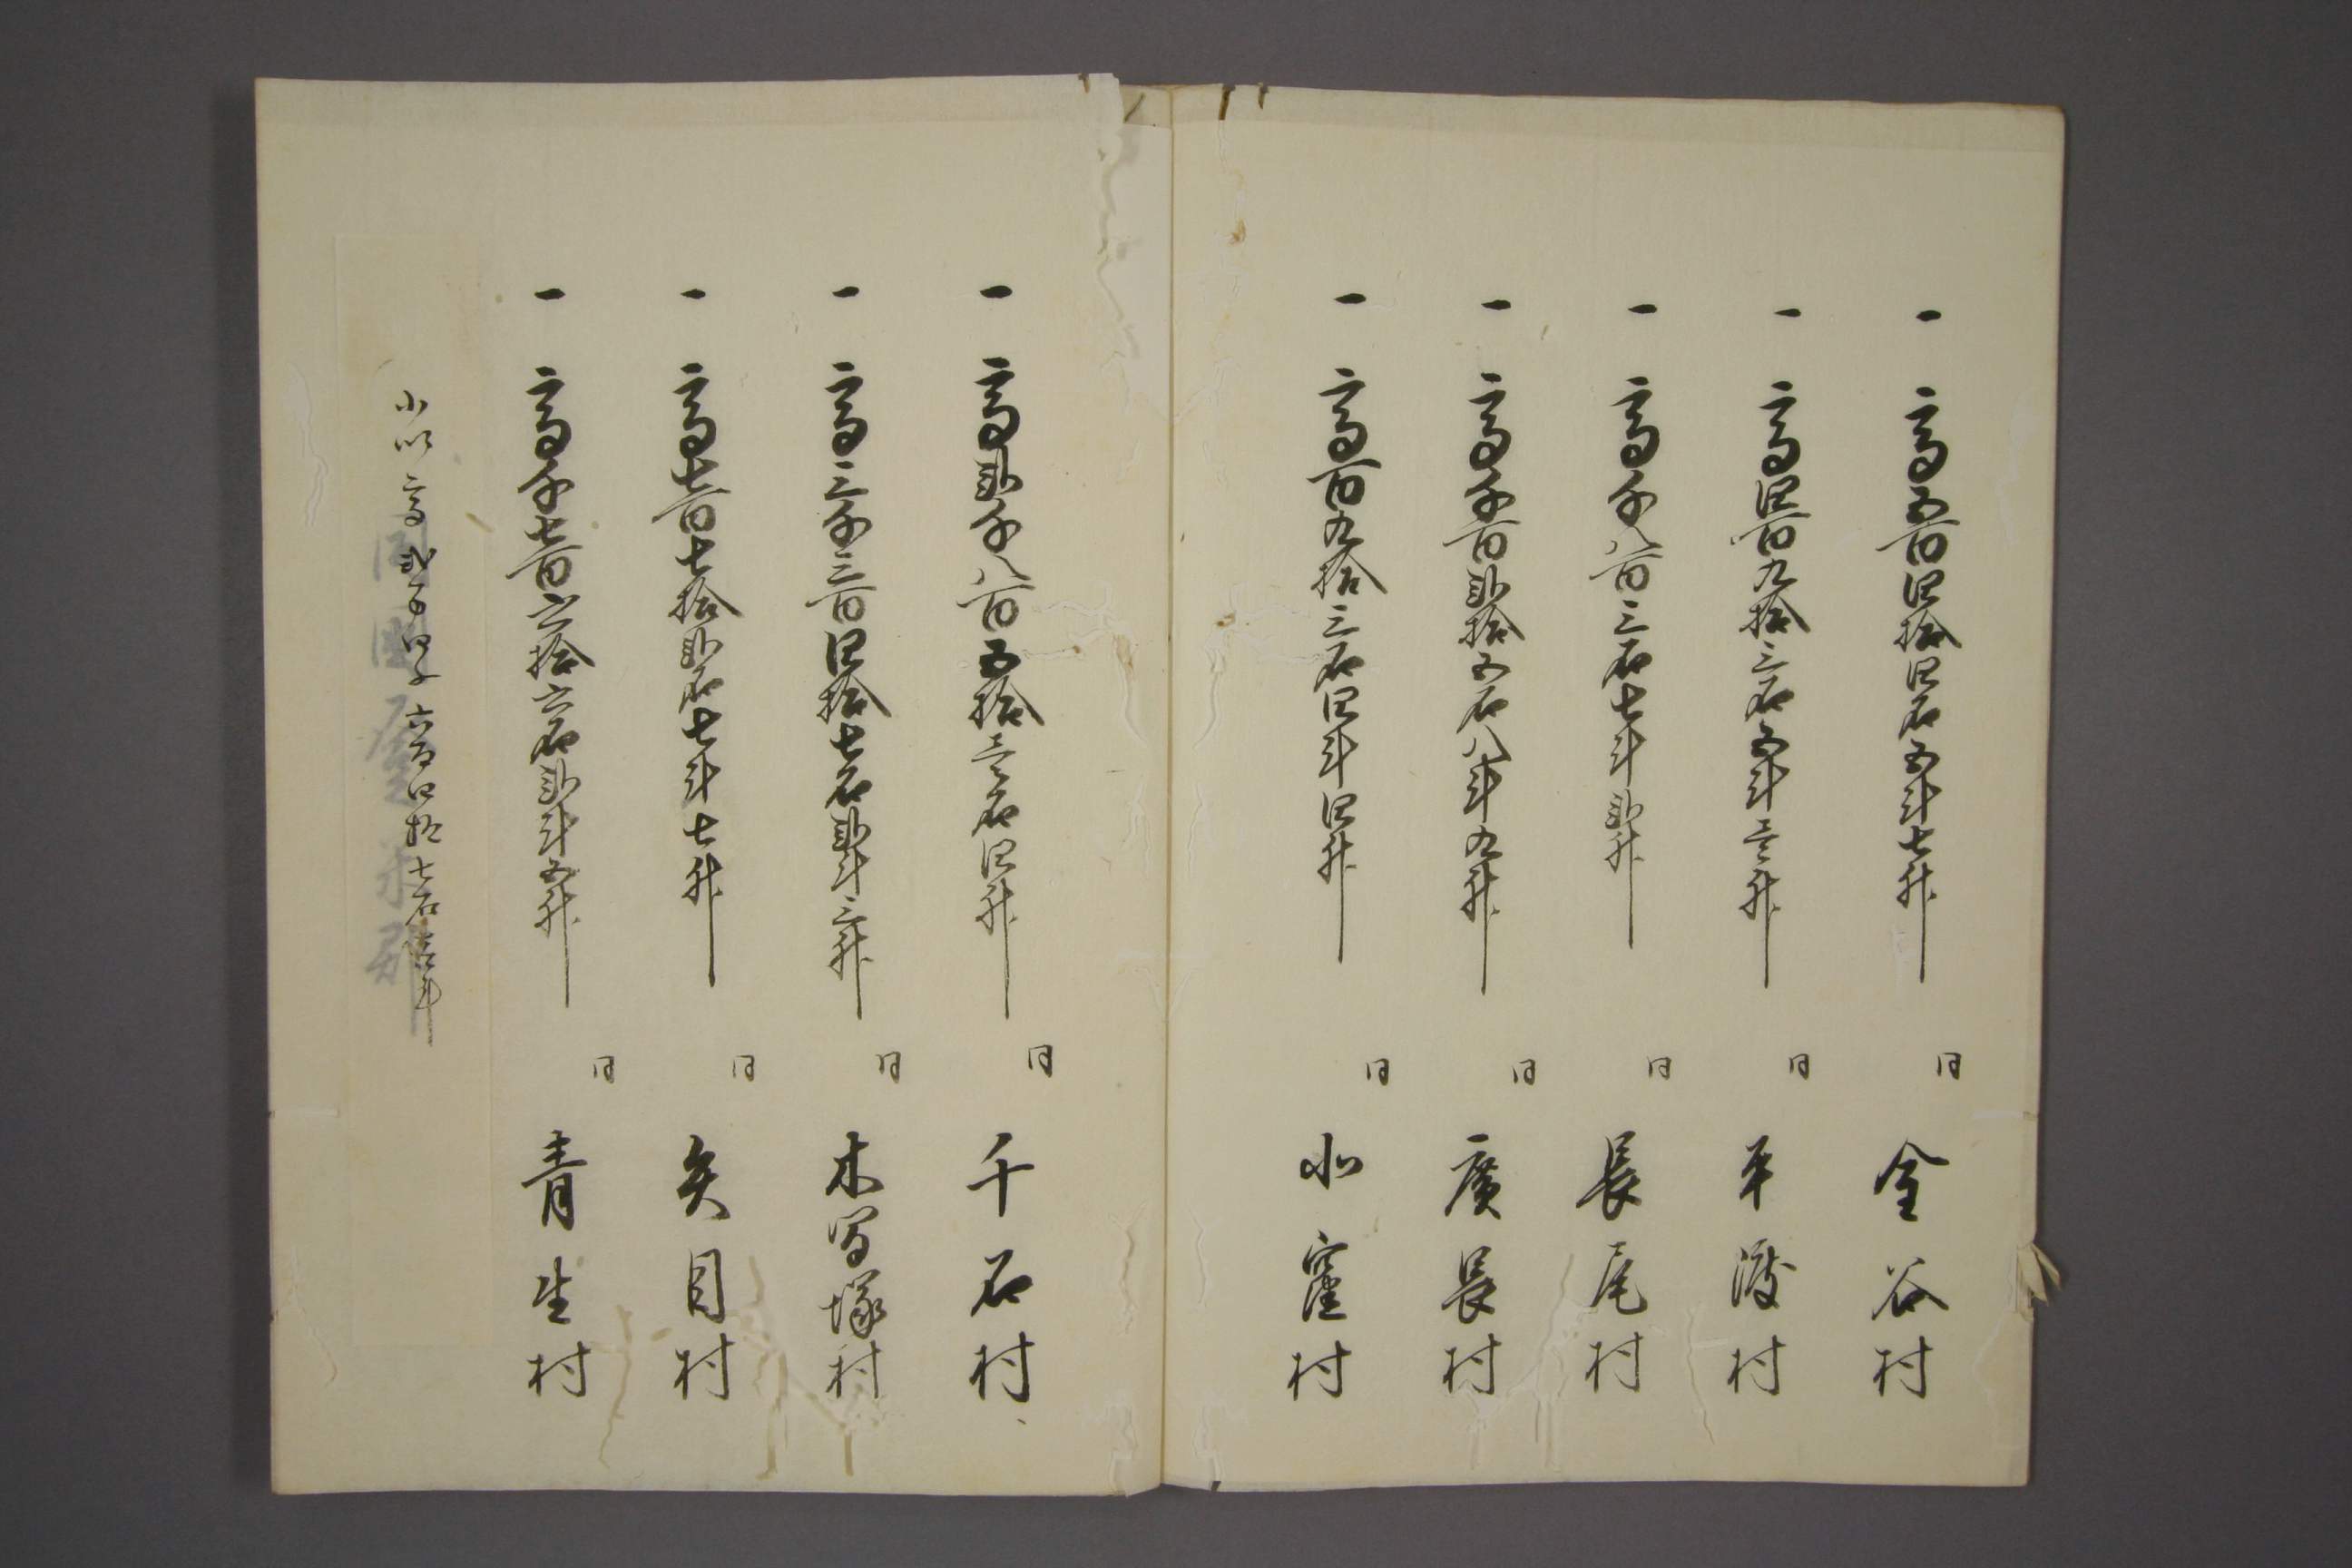 一 高五百四拾四石五斗七升 同 金谷村
一 高四百九拾三石五斗壱升 同 平渡村
一 高千八百三石七斗弐升 同 長尾村
一 高千百弐拾五石八斗九升 同 廣長村
一 高百九拾三石四斗四升 同 小窪村
一 高弐千八百五拾壱石四升 同 千石村
一 高三千三百四拾七石弐斗三升 同 木間塚村
一 高七百七拾弐石七斗七升 同 矢目村
一 高千七百六拾六石弐斗五升 同 青生村
小以高弐万四千六百四拾七石壱斗